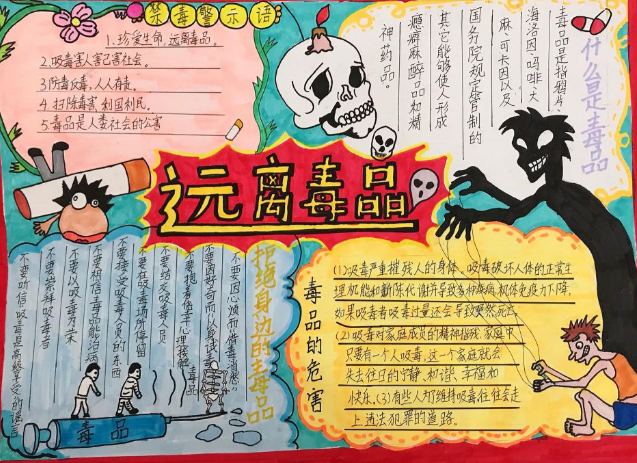 禁毒警示语
1.珍爱生命,远离毒品。
2.吸毒害人害己害社会。
3.防毒反毒,人人有责。
4.扫除毒害,利国利民。
5.毒品是人类社会的公害
什么是毒品
毒品是指鸦片、
海洛因、吗啡、大
麻、可卡因以及
国务院规定管制的
其它能够使人形成
瘾癖麻醉品和精
神药品。
远离毒品
拒绝身边的毒品
不要因心烦而
不要因好奇而以身试毒
不要抱有侥幸心理接触毒品
不要结交吸毒人员
不要在吸毒场所停留
不要接受吸毒人员的东西
不要相信毒品能治病
不要以吸毒为荣
不要崇拜吸毒者
不要听信吸毒是高级享受的谣言
毒品
毒品的危害
(1)吸毒严重摧残人的身体、吸毒破坏人体的正常生
理机能和新陈代谢并导致多种疾病,机体免疫力下降,
如果吸毒者吸毒过量还会导致突然死亡
(2)吸毒对家庭成员的精神摧残,家庭中
只要有一个人吸毒,这一个家庭就会
失去往日的宁静、和谐、幸福和
快乐.(3)有些人为维持吸毒往往会走
上违法犯罪的道路.